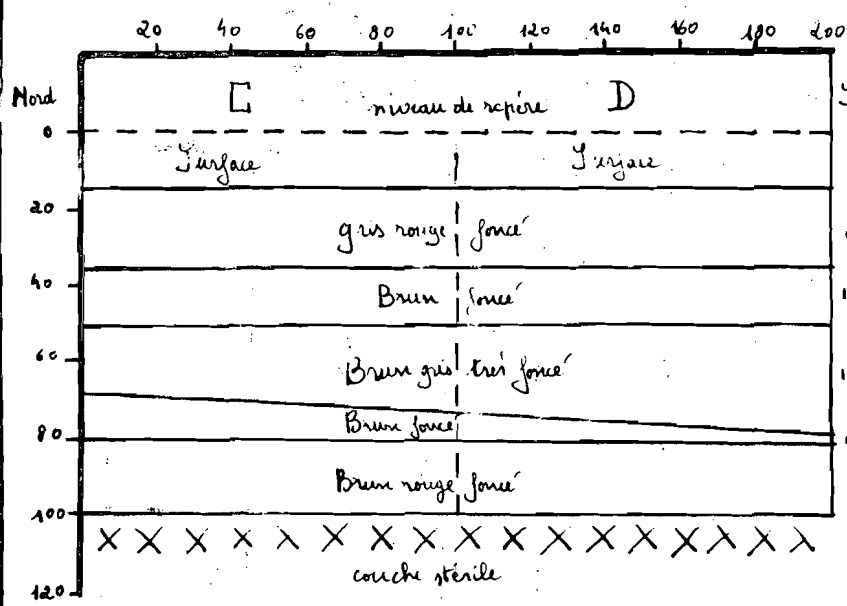 20 40 60 80 100 120 140 160 180 200
Nord
C niveau de repère D
0
Surface Surface
20
gris rouge foncé
40
Brun foncé
60
Brun gris très foncé
Brun foncé
80
Brun rouge foncé
100
X X X X X X X X X X X X X X X X X X
couche stérile
120